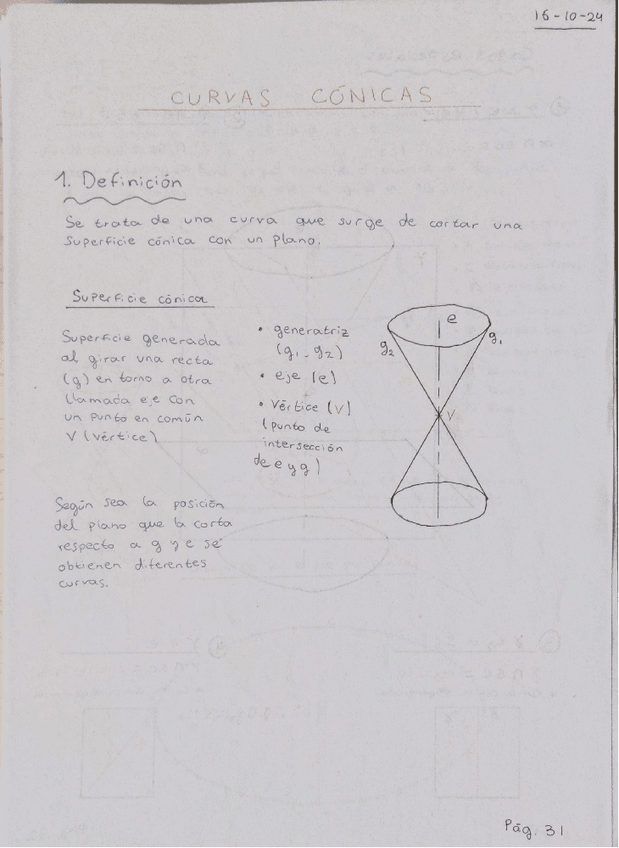 16-10-24
CURVAS CÓNICAS
1. Definición
Se trata de una curva que surge de cortar una
superficie cónica con un plano.
Superficie cónica
Superficie generada
al girar una recta
(g) en torno a otra
llamada eje con
un punto en común
V (vértice)
• generatriz
(g1 - g2)
• eje (e)
• Vértice (V)
(punto de
intersección
de e y g)
e
g2
g1
V
Según sea la posición
del plano que la corta
respecto a g y e se
obtienen diferentes
curvas.
Pág. 31